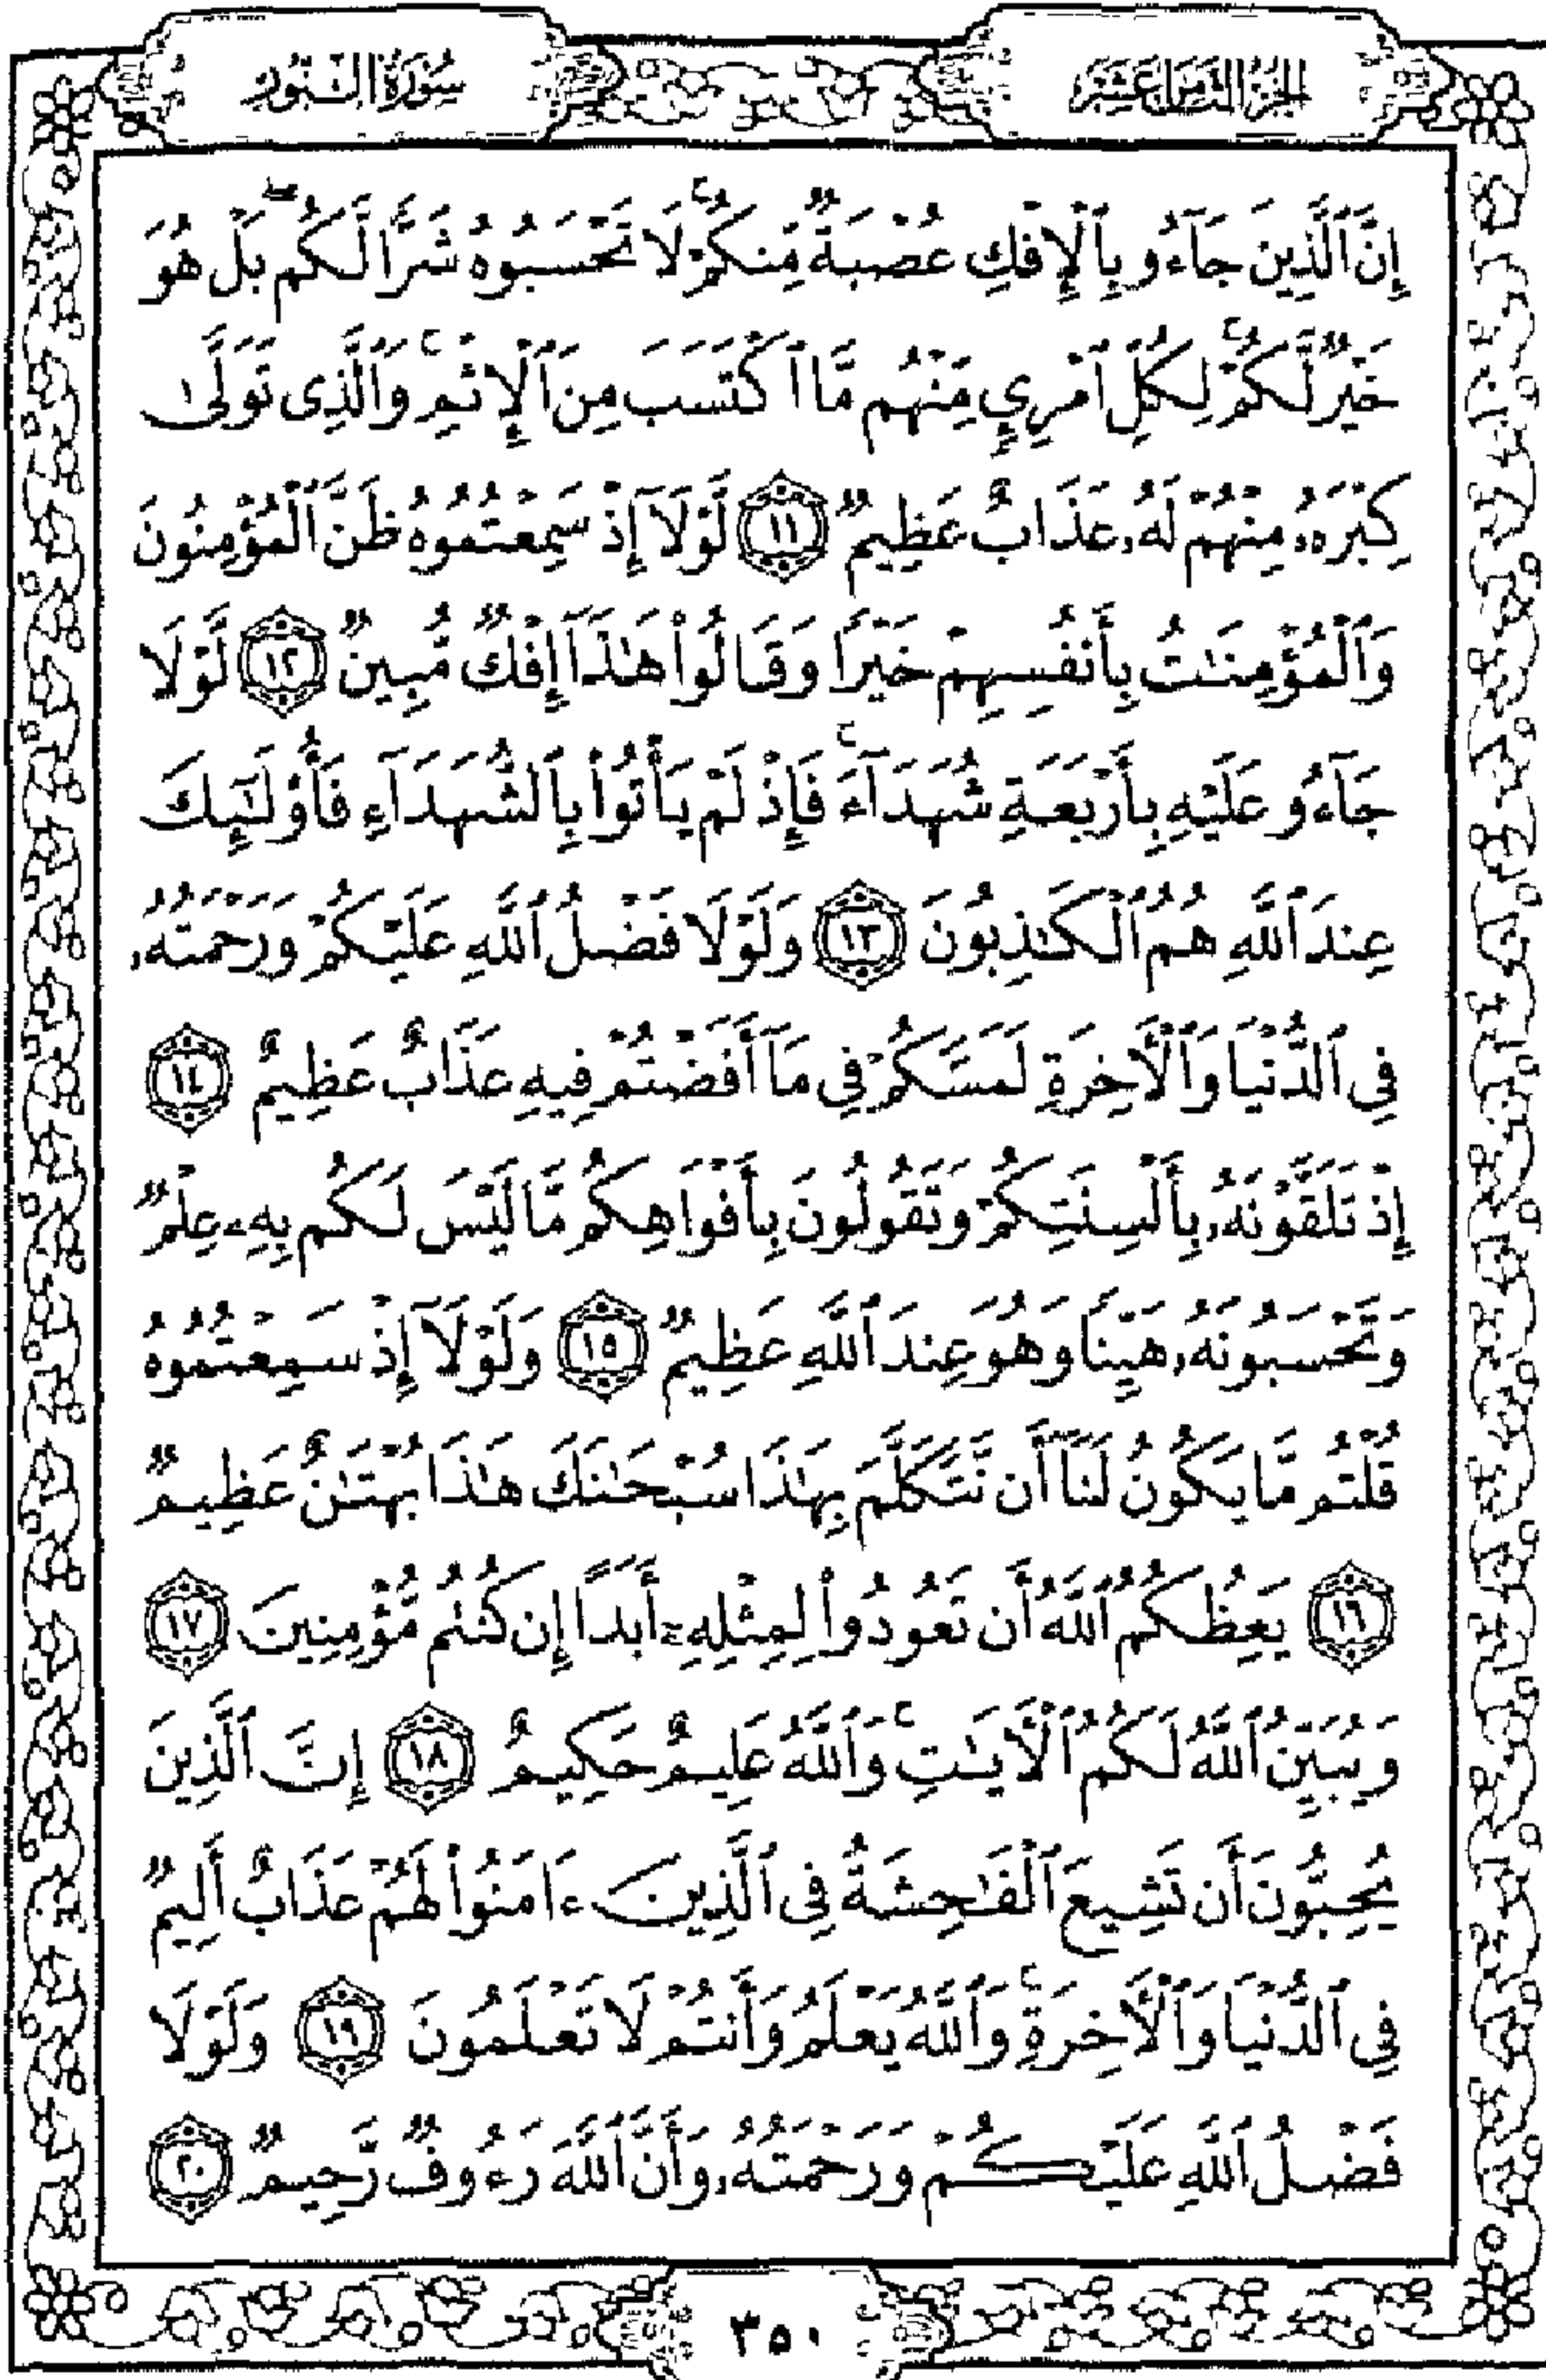 الجزء الثامن عشر
سورة النور
إِنَّ ٱلَّذِينَ جَآءُو بِٱلْإِفْكِ عُصْبَةٌ مِّنكُمْ ۚ لَا تَحْسَبُوهُ شَرًّا لَّكُم ۖ بَلْ هُوَ
خَيْرٌ لَّكُمْ ۚ لِكُلِّ ٱمْرِئٍ مِّنْهُم مَّا ٱكْتَسَبَ مِنَ ٱلْإِثْمِ ۚ وَٱلَّذِى تَوَلَّىٰ
كِبْرَهُۥ مِنْهُمْ لَهُۥ عَذَابٌ عَظِيمٌ ١١ لَّوْلَآ إِذْ سَمِعْتُمُوهُ ظَنَّ ٱلْمُؤْمِنُونَ
وَٱلْمُؤْمِنَٰتُ بِأَنفُسِهِمْ خَيْرًا وَقَالُوا۟ هَٰذَآ إِفْكٌ مُّبِينٌ ١٢ لَّوْلَا
جَآءُو عَلَيْهِ بِأَرْبَعَةِ شُهَدَآءَ ۚ فَإِذْ لَمْ يَأْتُوا۟ بِٱلشُّهَدَآءِ فَأُو۟لَٰٓئِكَ
عِندَ ٱللَّهِ هُمُ ٱلْكَٰذِبُونَ ١٣ وَلَوْلَا فَضْلُ ٱللَّهِ عَلَيْكُمْ وَرَحْمَتُهُۥ
فِى ٱلدُّنْيَا وَٱلْءَاخِرَةِ لَمَسَّكُمْ فِى مَآ أَفَضْتُمْ فِيهِ عَذَابٌ عَظِيمٌ ١٤
إِذْ تَلَقَّوْنَهُۥ بِأَلْسِنَتِكُمْ وَتَقُولُونَ بِأَفْوَاهِكُم مَّا لَيْسَ لَكُم بِهِۦ عِلْمٌ
وَتَحْسَبُونَهُۥ هَيِّنًا وَهُوَ عِندَ ٱللَّهِ عَظِيمٌ ١٥ وَلَوْلَآ إِذْ سَمِعْتُمُوهُ
قُلْتُم مَّا يَكُونُ لَنَآ أَن نَّتَكَلَّمَ بِهَٰذَا سُبْحَٰنَكَ هَٰذَا بُهْتَٰنٌ عَظِيمٌ
١٦ يَعِظُكُمُ ٱللَّهُ أَن تَعُودُوا۟ لِمِثْلِهِۦٓ أَبَدًا إِن كُنتُم مُّؤْمِنِينَ ١٧
وَيُبَيِّنُ ٱللَّهُ لَكُمُ ٱلْءَايَٰتِ ۚ وَٱللَّهُ عَلِيمٌ حَكِيمٌ ١٨ إِنَّ ٱلَّذِينَ
يُحِبُّونَ أَن تَشِيعَ ٱلْفَٰحِشَةُ فِى ٱلَّذِينَ ءَامَنُوا۟ لَهُمْ عَذَابٌ أَلِيمٌ
فِى ٱلدُّنْيَا وَٱلْءَاخِرَةِ ۚ وَٱللَّهُ يَعْلَمُ وَأَنتُمْ لَا تَعْلَمُونَ ١٩ وَلَوْلَا
فَضْلُ ٱللَّهِ عَلَيْكُمْ وَرَحْمَتُهُۥ وَأَنَّ ٱللَّهَ رَءُوفٌ رَّحِيمٌ ٢٠
٣٥٠